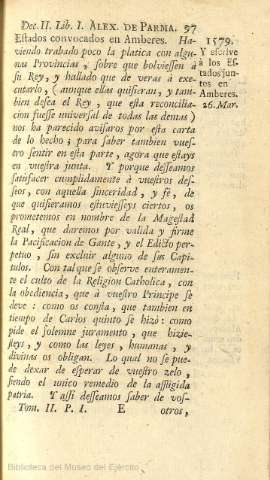 Dec. II. Lib. I. ALEX. DE PARMA. 97
Estados convocados en Amberes. Ha-
viendo trabado poco ha platica con algu-
nas Provincias, sobre que bolviessen à
su Rey, y hallado que de veras à exe-
cutarlo, (aunque ellas quisieran, y tam-
bien dessea el Rey, que esta reconcilia-
cion fuesse universal de todas las demas)
nos ha parecido avisaros por esta carta
de lo hecho; para saber tambien vues-
tro sentir en esta parte, agora que estays
en vuestra junta. Y porque desseamos
satisfacer cumplidamente à vuestros des-
seos, con aquella sinceridad, y fé, de
que quisieramos estuviesseys ciertos, os
prometemos en nombre de la Magestad
Real, que daremos por valida y firme
la Pacificacion de Gante, y el Edicto per-
petuo, sin excluir alguno de sus Capi-
tulos. Con tal que se observe enteramen-
te el culto de la Religion Catholica, con
la obediencia, que à vuestro Principe se
deve: como os consta, que tambien en
tiempo de Carlos quinto se hizo: como
pide el solemne juramento, que hizie-
steys, y como las leyes, humanas, y
divinas os obligan. Lo qual no se pue-
de dexar de esperar de vuestro zelo,
siendo el unico remedio de la affligida
patria. Y assi desseamos saber de vos-
Tom. II. P. I. E otros,
1579.
Y escrive
à los Es-
tados jun-
tos en
Amberes.
26. Mar.
Biblioteca del Museo del Ejército